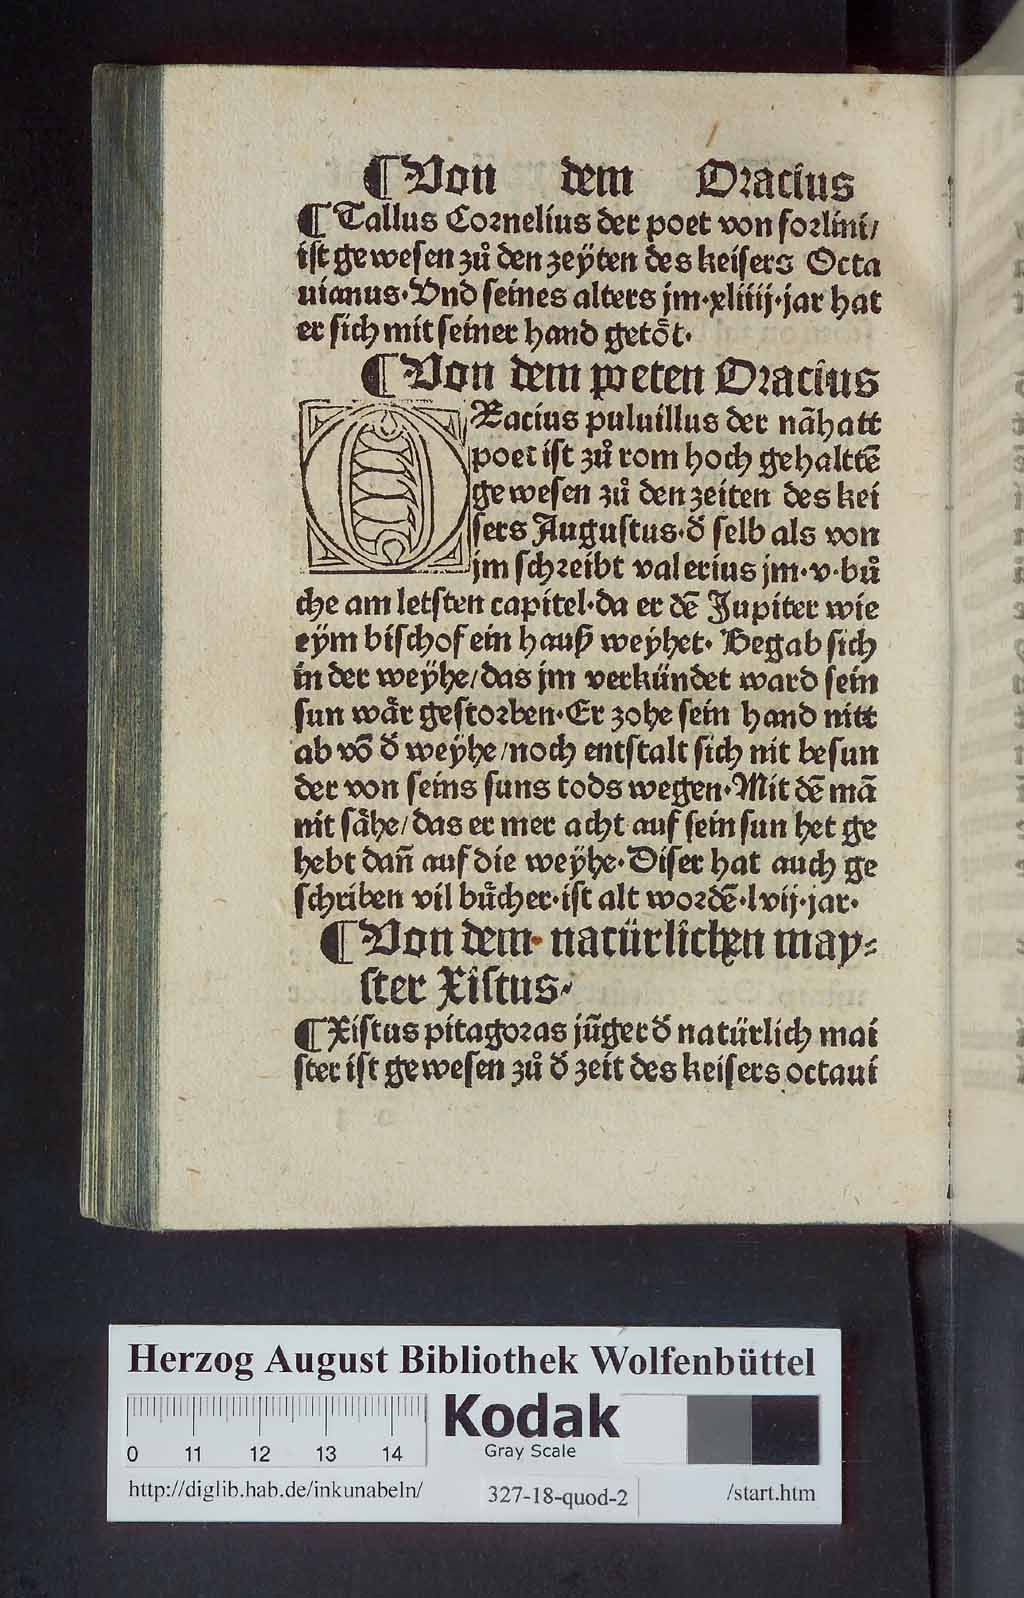 ¶ Von dem Oracius
¶ Tallus Cornelius der poet von forlini/
ist gewesen zů den zeÿten des keisers Octa
uianus· Vnd seines alters jm·xliiij·jar hat
er sich mit seiner hand getöt·
¶ Von dem poeten Oracius
ORacius puluillus der nāhatt
poet ist zů rom hoch gehalttē
gewesen zů den zeiten des kei
sers Augustus·ð selb als von
jm schreibt valerius jm·v·bů
che am letsten capitel·da er dē Jupiter wie
eÿm bischof ein hauß weÿhet· Begab sich
in der weÿhe/das jm verkündet ward sein
sun wär gestorben·Er zohe sein hand nitt
ab vō ð weÿhe/noch entstalt sich nit besun
der von seins suns tods wegen·Mit dē mā
nit sähe/das er mer acht auf sein sun het ge
hebt dañ auf die weÿhe·Diser hat auch ge
schriben vil bůcher·ist alt wordē·lvij·jar·
¶ Von dem natürlichen may⸗
ster Xistus·
¶ Xistus pitagoras jūger ð natürlich mai
ster ist gewesen zů ð zeit des keisers octaui
Herzog August Bibliothek Wolfenbüttel
Kodak
Gray Scale
0 11 12 13 14
http://diglib.hab.de/inkunabeln/ 327-18-quod-2 /start.htm